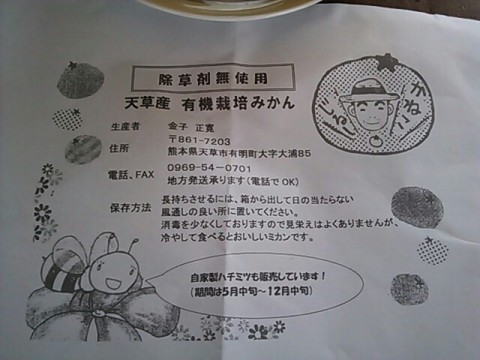 除草剤無使用
天草産 有機栽培みかん
生産者 金子 正寛
〒861-7203
住所 熊本県天草市有明町大字大浦85
電話、FAX 0969-54-0701
地方発送承ります(電話でOK)
保存方法 長持ちさせるには、箱から出して日の当たらない
風通しの良い所に置いてください。
消毒を少なくしておりますので見栄えはよくありませんが、
冷やして食べるとおいしいミカンです。
自家製ハチミツも販売しています!
(期間は5月中旬~12月中旬)
かねこ